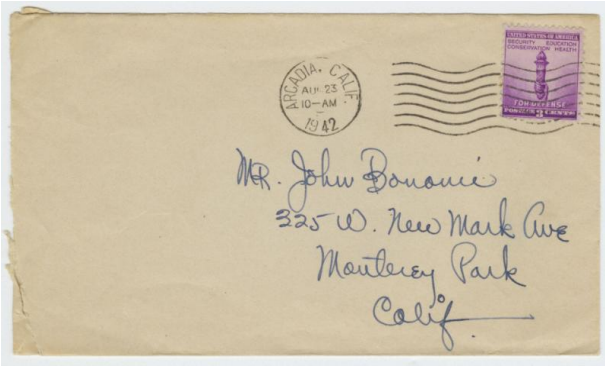 ARCADIA, CALIF.
AUG 23
10-AM
1942
UNITED STATES OF AMERICA
SECURITY EDUCATION
CONSERVATION HEALTH
FOR DEFENSE
POSTAGE 3 CENTS
MR. John Bonomie
325 W. New Mark Ave
Monterey Park
Calif